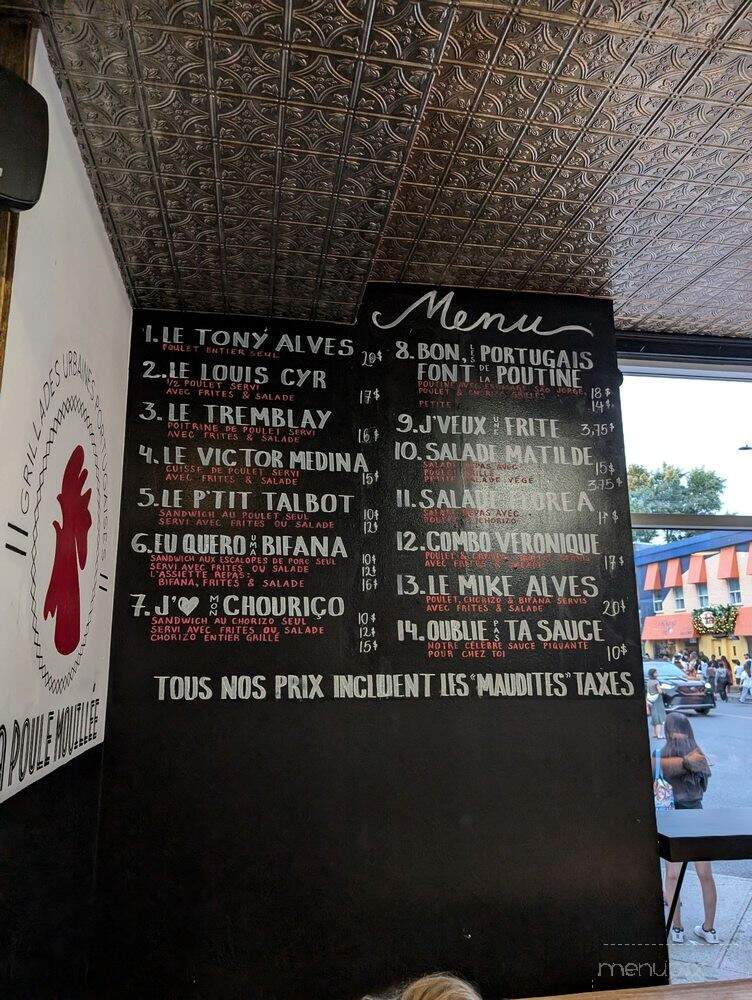 GRILLADES URBAINES PORTUGAISES
LA POULE MOUILLÉE
Menu
1. LE TONY ALVES
POULET ENTIER SEUL
20$
2. LE LOUIS CYR
1/2 POULET SERVI
AVEC FRITES & SALADE
17$
3. LE TREMBLAY
POITRINE DE POULET SERVI
AVEC FRITES & SALADE
16$
4. LE VICTOR MEDINA
CUISSE DE POULET SERVI
AVEC FRITES & SALADE
15$
5. LE P'TIT TALBOT
SANDWICH AU POULET SEUL 10$
SERVI AVEC FRITES OU SALADE 12$
6. EU QUERO UMA BIFANA
SANDWICH AUX ESCALOPES DE PORC SEUL 10$
SERVI AVEC FRITES OU SALADE 12$
L'ASSIETTE REPAS:
BIFANA, FRITES & SALADE 16$
7. J'♥ MON CHOURIÇO
SANDWICH AU CHORIZO SEUL 10$
SERVI AVEC FRITES OU SALADE 12$
CHORIZO ENTIER GRILLÉ 15$
8. BON, LES PORTUGAIS
FONT DE LA POUTINE
POUTINE AVEC FROMAGE SAO JORGE,
POULET & CHORIZO GRILLÉS 18$
PETITE 14$
9. J'VEUX UNE FRITE 3,75$
10. SALADE MATILDE
SALADE REPAS AVEC
POULET 15$
PETITE SALADE VÉGÉ 3,75$
11. SALADE
REPAS AVEC
CHORIZO
12. COMBO VERONIQUE
POULET &
AVEC FRITES & SALADE
17$
13. LE MIKE ALVES
POULET, CHORIZO & BIFANA SERVIS
AVEC FRITES & SALADE
20$
14. OUBLIE PAS TA SAUCE
NOTRE CÉLÈBRE SAUCE PIQUANTE
POUR CHEZ TOI
10$
TOUS NOS PRIX INCLUENT LES "MAUDITES" TAXES
menupix